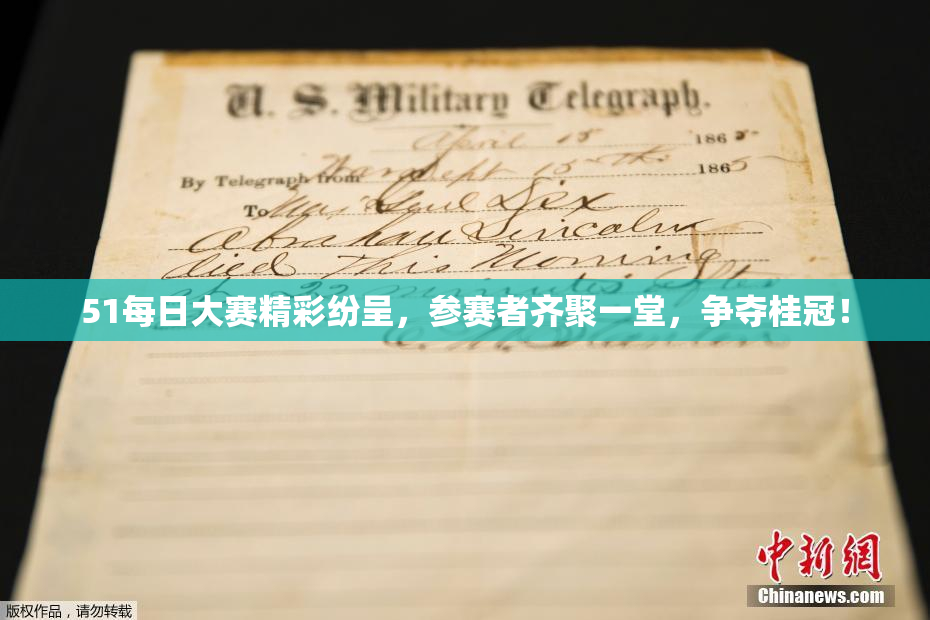 U. S. Military Telegraph.
April 15 1865
By Telegraph from War Dept 15th 1865
To Maj Genl Dix
Abraham Lincoln
died This Morning
at 22 minutes after
51每日大赛精彩纷呈，参赛者齐聚一堂，争夺桂冠！
E. M. Stanton
中新网
Chinanews.com
版权作品，请勿转载